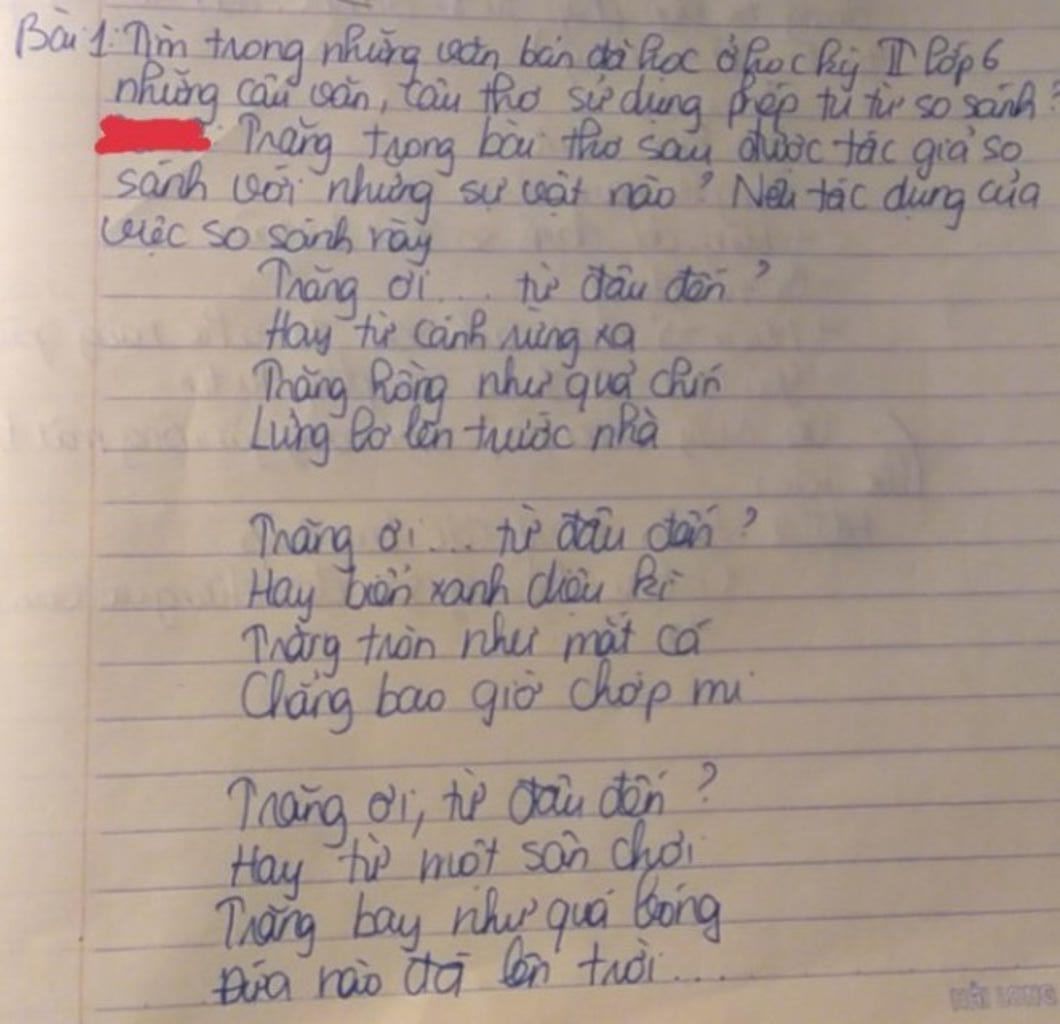 Bài 1: Tìm trong những văn bản đã học ở học kỳ II lớp 6
những câu văn, câu thơ sử dụng phép tu từ so sánh?
Trăng trong bài thơ sau được tác giả so
sánh với những sự vật nào? Nêu tác dụng của
việc so sánh này
Trăng ơi.... từ đâu đến?
Hay từ cánh rừng xa
Trăng hồng như quả chín
Lửng lơ lên trước nhà
Trăng ơi... từ đâu đến?
Hay biển xanh diệu kì
Trăng tròn như mắt cá
Chẳng bao giờ chớp mi
Trăng ơi, từ đâu đến?
Hay từ một sân chơi
Trăng bay như quả bóng
Đứa nào đá lên trời....
HẢI LONG